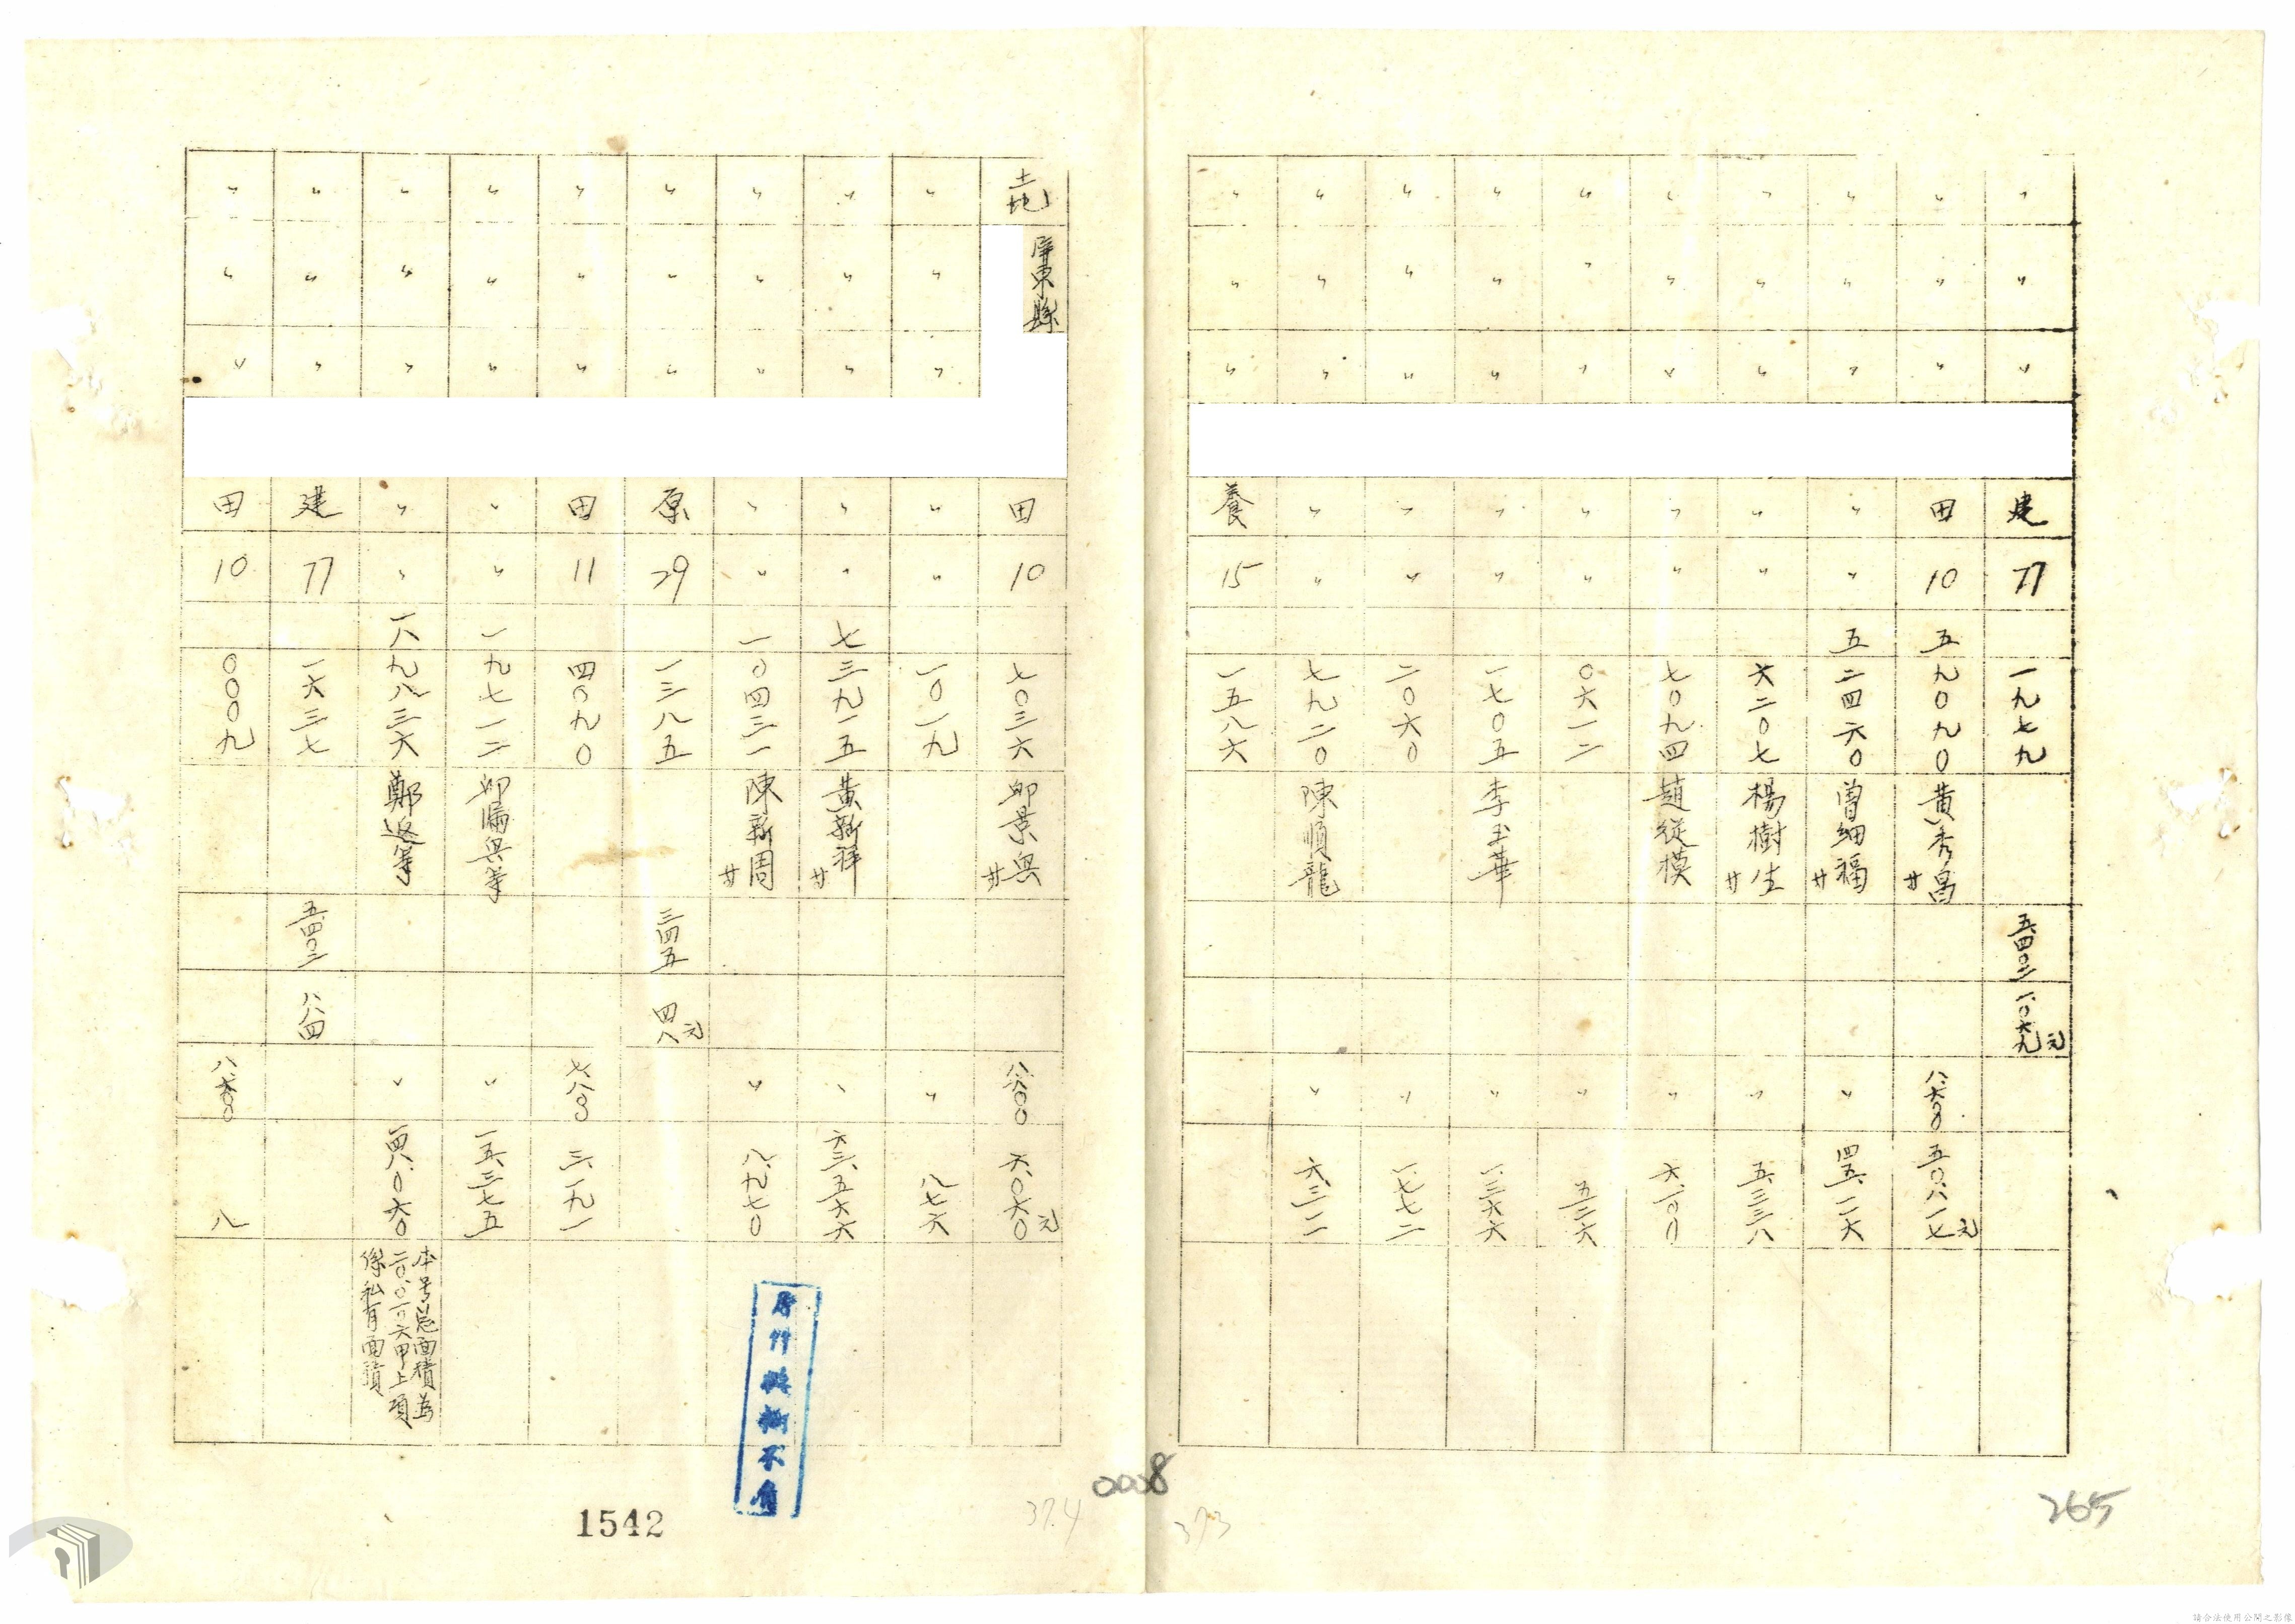 〃 〃 〃 建 77 一九七九 五四〇二 一〇六九元
〃 〃 〃 田 10 五九〇九〇 黃秀昌 廿 八六〇〇 五〇八一七元
〃 〃 〃 〃 〃 五二四六〇 曾細福 廿 〃 四五一一六
〃 〃 〃 〃 〃 六二〇七 楊樹生 廿 〃 五三三八
〃 〃 〃 〃 〃 七〇九四 趙從模 〃 六一〇〇
〃 〃 〃 〃 〃 〇六一二 〃 五二六
〃 〃 〃 〃 〃 一七〇五 李玉華 〃 一三六六
〃 〃 〃 〃 〃 二〇六〇 〃 一七七二
〃 〃 〃 〃 〃 七九二〇 陳順龍 〃
〃 〃 〃 養 15 一五八六
土地 屏東縣 田 10 七〇三六 廿 八六〇〇 六〇六〇元
〃 〃 〃 〃 〃 一〇一九 〃 八七六
〃 〃 〃 〃 〃 七三九一五 黃新祥 廿 〃 六三五六六
〃 〃 〃 〃 〃 一〇四三一 陳新周 廿 〃 八九七〇
〃 〃 〃 原 29 一三八五 三四五 四八元
〃 〃 〃 田 11 四〇九〇 七八〇〇 三一九一
〃 〃 〃 〃 〃 一九七一二 〃 一五三七五
〃 〃 〃 〃 〃 一八九八三六 鄭返等 〃 一四八〇六〇
本号总面積為
二〇〇一〇六甲上項
係私有面積
〃 〃 〃 建 77 一六三七 五四〇二 八八四
〃 〃 〃 田 10 〇〇〇九 八六〇〇 八
1542
0008
374
373
265
請合法使用公開之影像